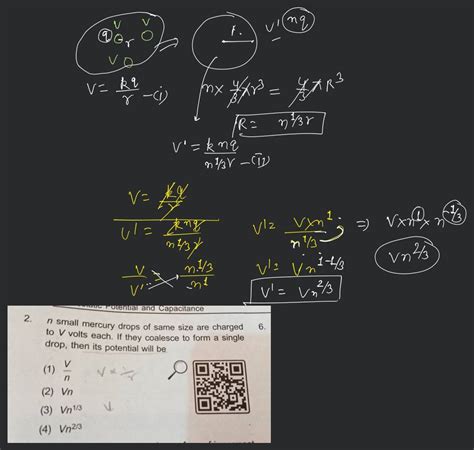 V V
q r
V
r
V' nq
V = kq/r —(i)
n x 4/3 π r³ = 4/3 π R³
R = n^1/3 r
V' = knq/n^1/3 r —(II)
V = kq/r
V' = knq/n^1/3 r
V' = V x n^1/n^1/3 => V x n^1 x n^-1/3
V/V' = n^1/3/n^1
V' = V n^1-1/3
Vn^2/3
V' = Vn^2/3
Potential and Capacitance
2. n small mercury drops of same size are charged 6.
to V volts each. If they coalesce to form a single
drop, then its potential will be
(1) V/n
(2) Vn
(3) Vn^1/3
(4) Vn^2/3